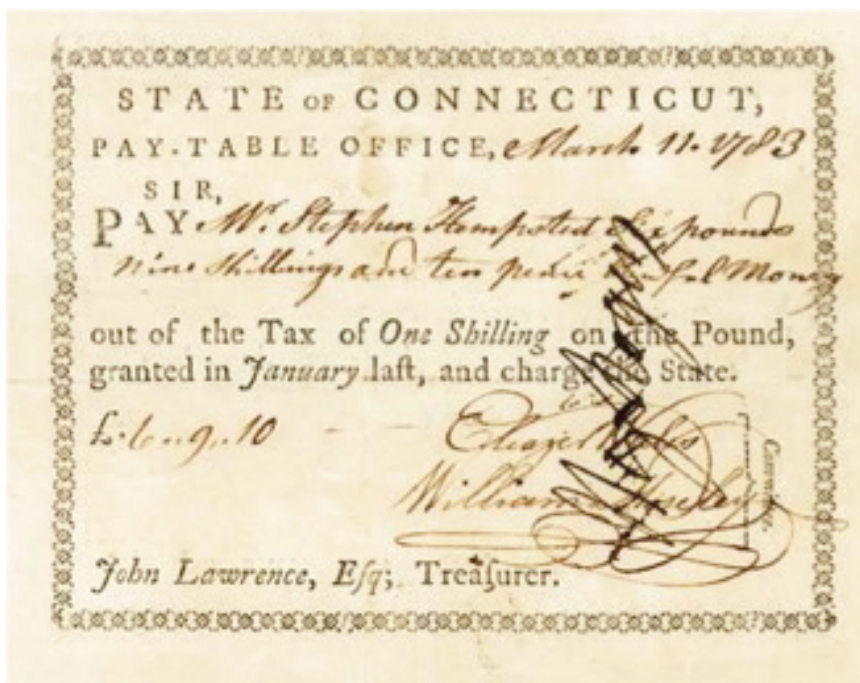 STATE OF CONNECTICUT,
PAY-TABLE OFFICE, March 11. 1783
SIR,
PAY Mr. Stephen Hempsted Six pounds
nine shillings and ten penc Money
out of the Tax of One Shilling on the Pound,
granted in January laſt, and charge the State.
£.6..9..10
William
Committee.
John Lawrence, Eſq; Treaſurer.